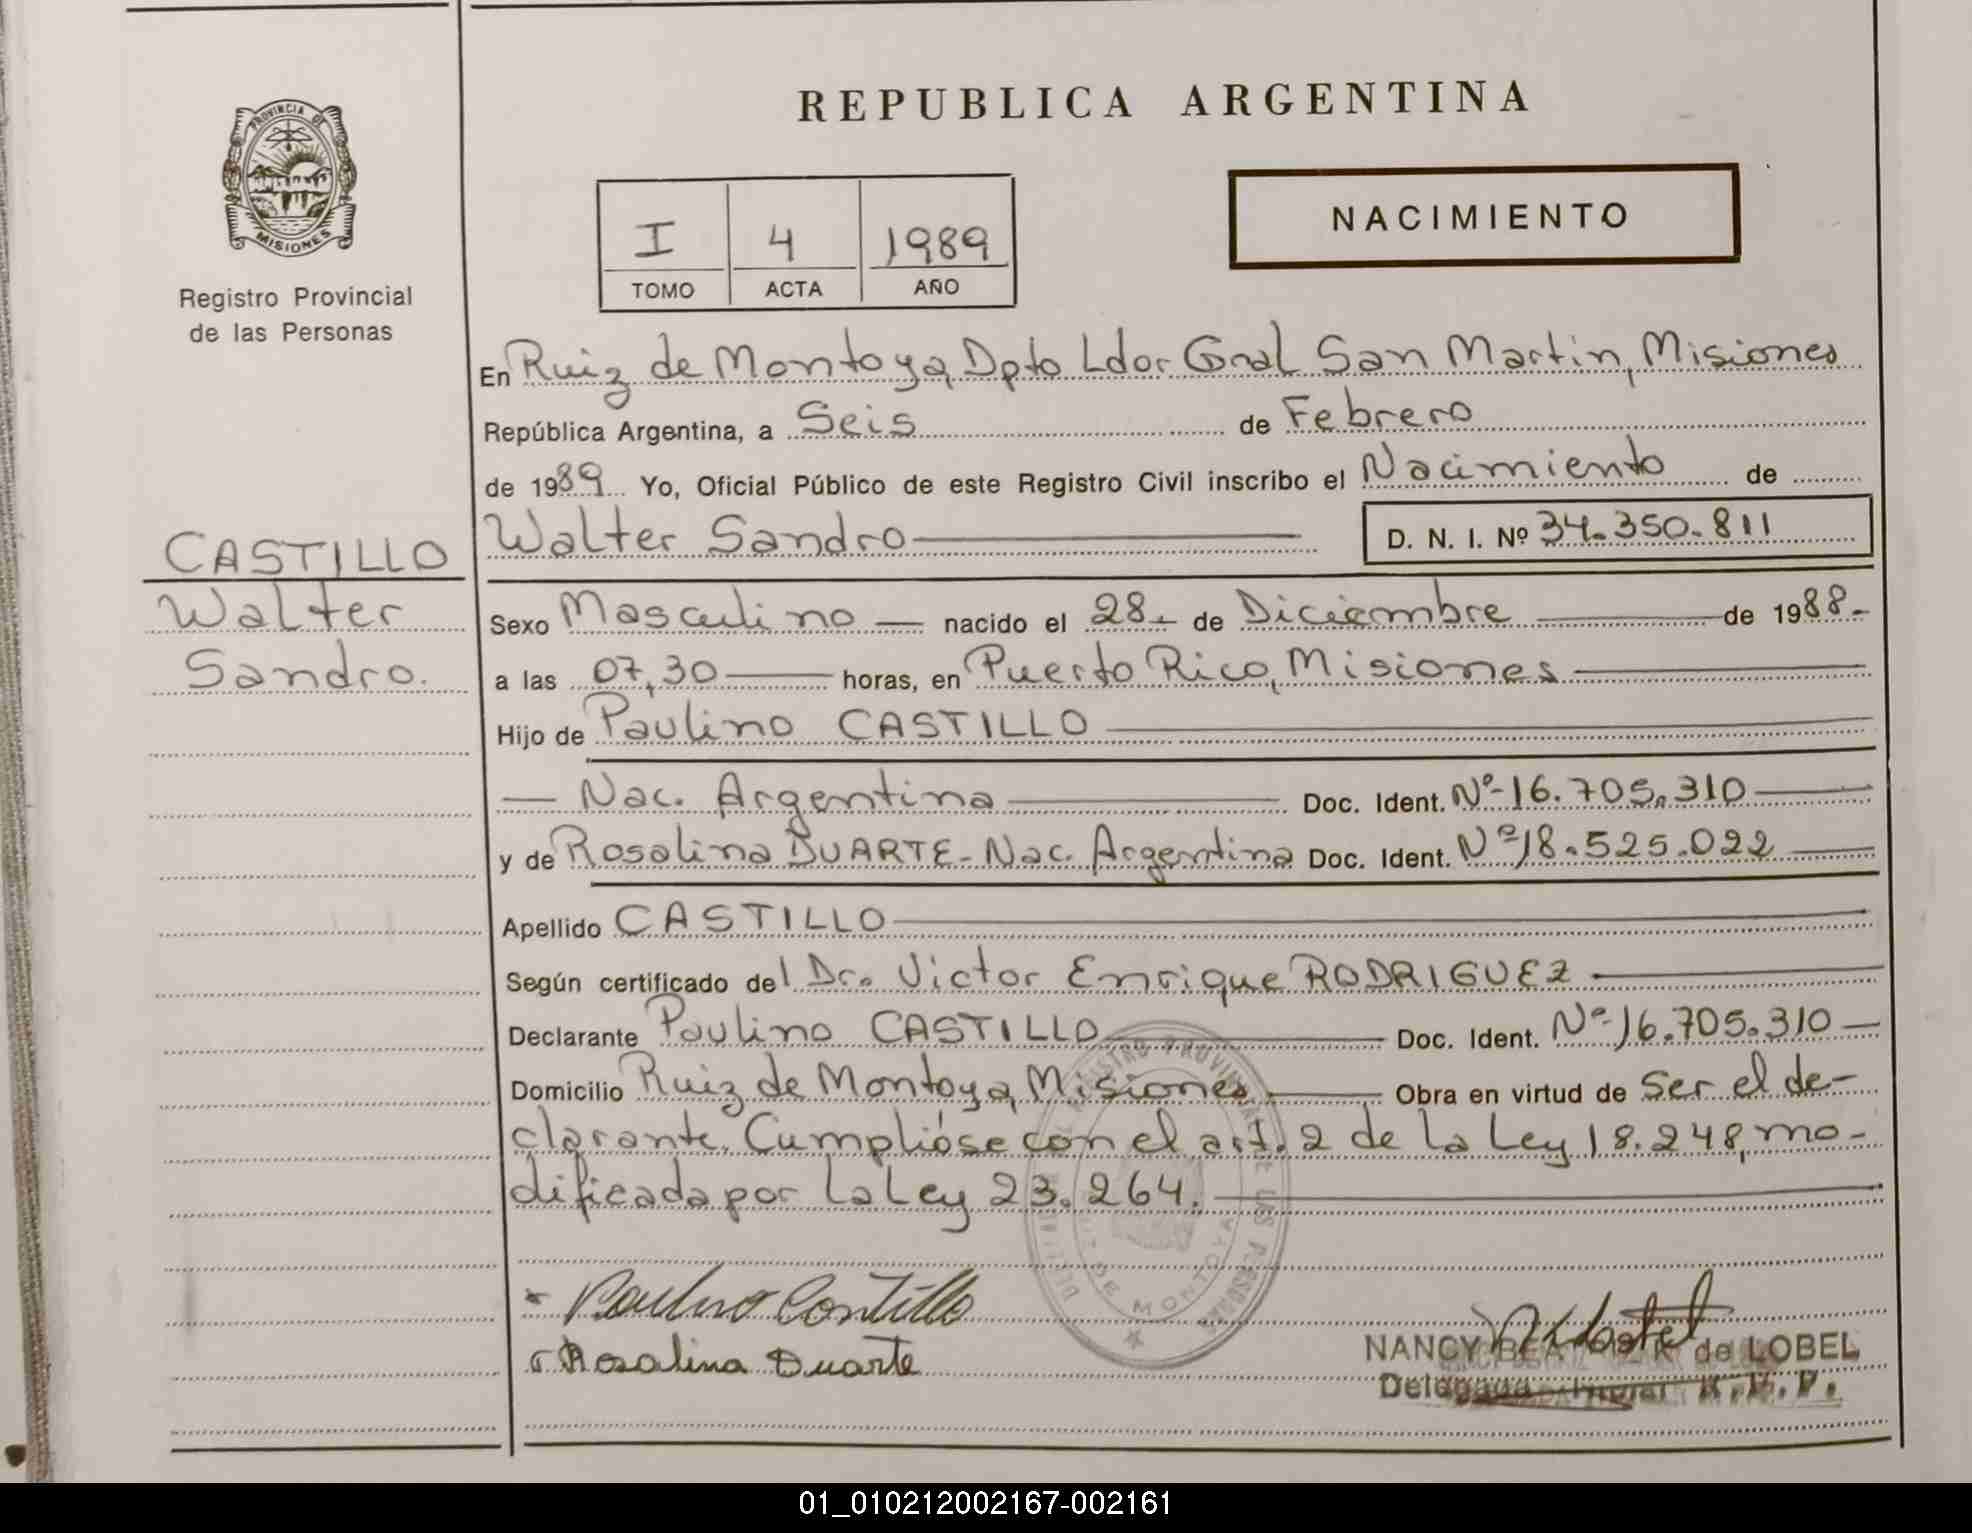 REPUBLICA ARGENTINA
PROVINCIA DE
MISIONES
Registro Provincial
de las Personas
I 4 1989
TOMO ACTA AÑO
NACIMIENTO
En Ruiz de Montoya, Dpto Ldor. Gral San Martin, Misiones
República Argentina, a Seis de Febrero
de 1989 Yo, Oficial Público de este Registro Civil inscribo el Nacimiento de
Walter Sandro D. N. I. Nº 34.350.811
CASTILLO
Walter
Sandro.
Sexo Masculino nacido el 28 de Diciembre de 1988
a las 07,30 horas, en Puerto Rico, Misiones
Hijo de Paulino CASTILLO
Nac. Argentina Doc. Ident. Nº 16.705.310
y de Rosalina DUARTE - Nac. Argentina Doc. Ident. Nº 18.525.022
Apellido CASTILLO
Según certificado del Dr. Victor Enrique RODRIGUEZ
Declarante Paulino CASTILLO Doc. Ident. Nº 16.705.310
Domicilio Ruiz de Montoya, Misiones Obra en virtud de Ser el de-
clarante. Cumplióse con el art. 2 de la Ley 18.248, mo-
dificada por la Ley 23.264.
REGISTRO PROVINCIAL DE LAS PERSONAS
DE MONTOYA
Paulino Castillo
Rosalina Duarte
NANCY de LOBEL
Delegada R.P.P.
01_010212002167-002161